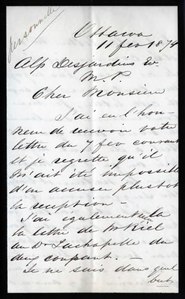 personnelle
Ottawa
11 fev 1874
Alp Desjardins Ec.
M.P.
Cher Monsieur
J'ai eu l'hon-
neur de recevoir votre
lettre du 7 fev courant
et je regrette qu'il
m'ait été impossible
d'en accuser plus tot
la reception -
J'ai egalement lu
la lettre de Mr Riel
au Dr Lachapelle du
courant. -
Je ne sais dans quel
but,